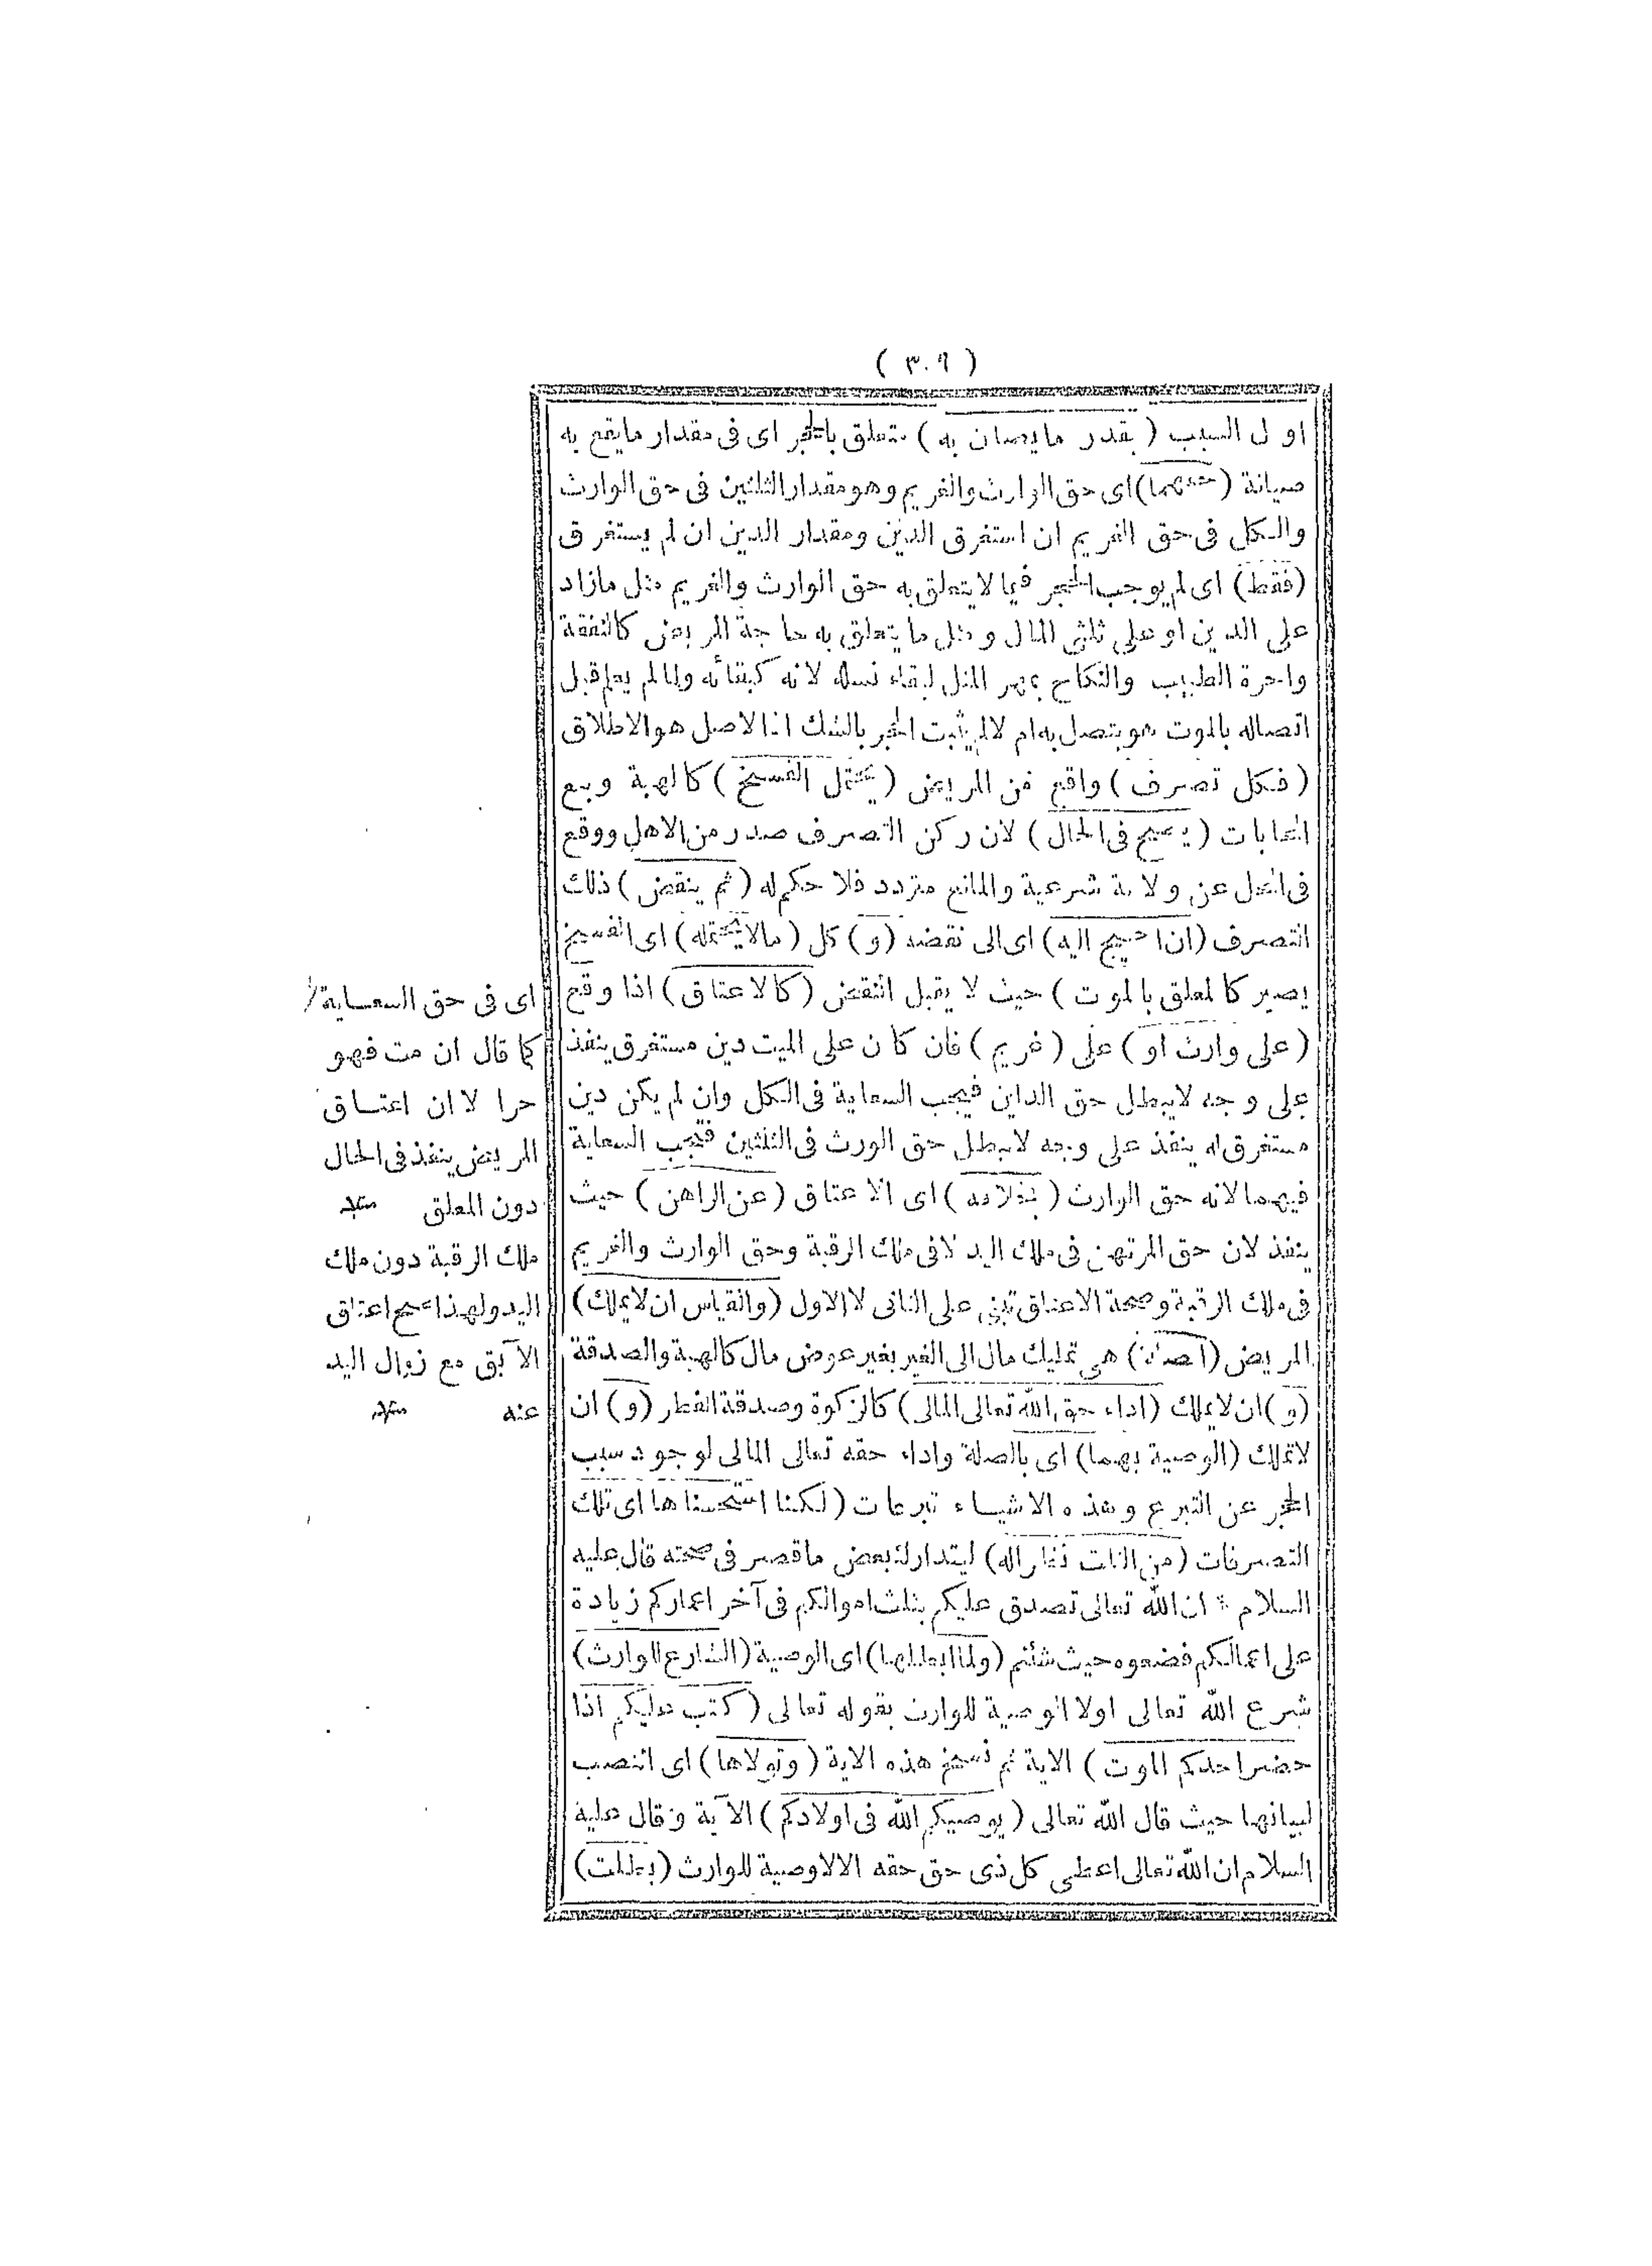 ( ٣٠٩ )
اول السبب ( بقدر ما يصان به ) متعلق بالحجر اى فى مقدار ما يقع به
صيانة ( حقهما ) اى حق الوارث والغريم وهو مقدار الثلثين فى حق الوارث
والكل فى حق الغريم ان استغرق الدين ومقدار الدين ان لم يستغرق
( فقط ) اى لم يوجب الحجر فيما لا يتعلق به حق الوارث والغريم مثل مازاد
على الدين او على ثلثى المال ومثل ما يتعلق به حاجة المريض كالنفقة
واجرة الطبيب والنكاح بمهر المثل لبقاء نسله لانه كبقائه ولما لم يعلم قبل
اتصاله بالموت هو يتصل به ام لا لم يثبت الحجر بالشك اذ الاصل هو الاطلاق
( فكل تصرف ) واقع من المريض ( يحتمل الفسخ ) كالهبة وبيع
المحابات ( يصح فى الحال ) لان ركن التصرف صدر من الاهل ووقع
فى المحل عن ولاية شرعية والمانع متردد فلا حكم له ( ثم ينقض ) ذلك
التصرف ( ان احتيج اليه ) اى الى نقضه ( و ) كل ( مالا يحتمله ) اى الفسخ
يصير كالمعلق بالموت ) حيث لا يقبل النقض ( كالاعتاق ) اذا وقع
( على وارث او ) على ( غريم ) فان كان على الميت دين مستغرق ينفذ
على وجه لا يبطل حق الداين فيجب السعاية فى الكل وان لم يكن دين
مستغرق له ينفذ على وجه لا يبطل حق الورث فى الثلثين فتجب السعاية
فيهما لانه حق الوارث ( بخلافه ) اى الاعتاق ( عن الراهن ) حيث
ينفذ لان حق المرتهن فى ملك اليد لا فى ملك الرقبة وحق الوارث والغريم
فى ملك الرقبة وصحة الاعتاق تبنى على الثانى لا الاول ( والقياس ان لا يملك )
المريض ( الصلة ) هى تمليك مال الى الغير بغير عوض مال كالهبة والصدقة
( و ) ان لا يملك ( اداء حق الله تعالى المالى ) كالزكوة وصدقة الفطر ( و ) ان
لا تملك ( الوصية بهما ) اى بالصلة واداء حقه تعالى المالى لوجود سبب
الحجر عن التبرع وهذه الاشياء تبرعات ( لكنا استحسنا ها اى تلك
التصرفات ( من الثلث نظرا له ) ليتدارك بعض ما قصر فى صحته قال عليه
السلام * ان الله تعالى تصدق عليكم بثلث اموالكم فى آخر اعماركم زيادة
على اعمالكم فضعوه حيث شئتم ( ولما ابطلها ) اى الوصية ( الشارع للوارث )
شرع الله تعالى اولا الوصية للوارث بقوله تعالى ( كتب عليكم اذا
حضر احدكم الموت ) الاية ثم نسخ هذه الاية ( وتولاها ) اى انتصب
لبيانها حيث قال الله تعالى ( يوصيكم الله فى اولادكم ) الآية وقال عليه
السلام ان الله تعالى اعطى كل ذى حق حقه الا لا وصية للوارث ( بطلت )
اى فى حق السعاية
كما قال ان مت فهو
حرا لا ان اعتاق
المريض ينفذ فى الحال
دون المعلق منه
ملك الرقبة دون ملك
اليد ولهذا صح اعتاق
الآبق مع زوال اليد
عنه منه